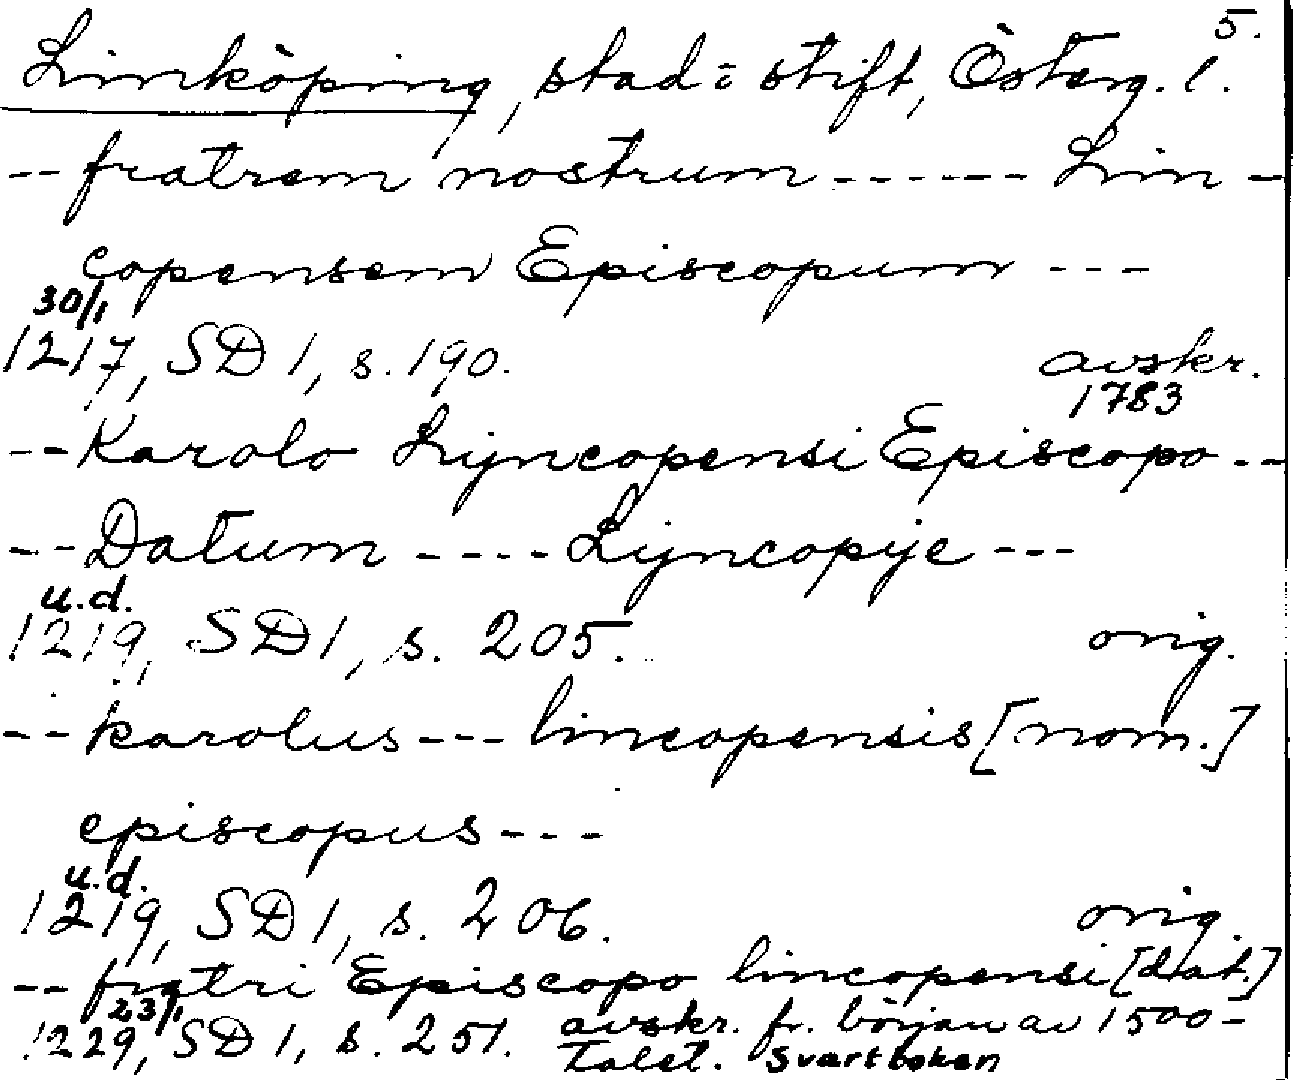 5.
Linköping, stad o stift, Österg. l.
-- fratrem nostrum ------ Lin-
copensem Episcopum ---
30/1
1217, SD 1, s. 190. avskr.
1783
-- Karolo Lijncopensi Episcopo --
-- Datum ---- Lijncopije ---
u.d.
1219, SD 1, s. 205. orig.
-- karolus --- lincopensis [nom.]
episcopus ---
u.d.
1219, SD 1, s. 206. orig.
-- fratri Episcopo lincopensi [dat.]
23/1
1229, SD 1, s. 251. avskr. fr. början av 1500-
talet. Svartboken